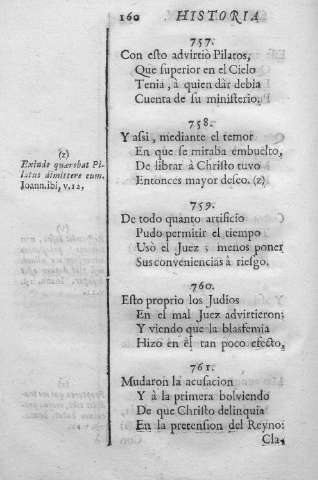 160 HISTORIA
757.
Con esto advirtiò Pilatos,
Que superior en el Cielo
Tenia, à quien dar debia
Cuenta de su ministerio.
758.
Y assi, mediante el temor
En que se miraba embuelto,
De librar à Christo tuvo
Entonces mayor deseo. (z)
(z)
Exinde quærebat Pi-
latus dimittere eum.
Ioann. ibi, v. 12.
759.
De todo quanto artificio
Pudo permitir el tiempo
Usò el Juez; menos poner
Sus conveniencias à riesgo.
760.
Esto proprio los Judios
En el mal Juez advirtieron;
Y viendo que la blasfemia
Hizo en èl tan poco efecto,
761.
Mudaron la acusacion
Y à la primera bolviendo
De que Christo delinquia
En la pretension del Reyno:
Cla-